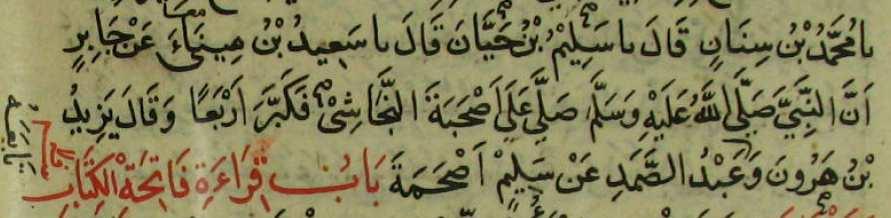 نا مُحَمَّدُ بْنُ سِنَانٍ قَالَ نا سَلِيْمُ بْنُ حَيَّانَ قَالَ نا سَعِيدُ بْنُ مِينَاءَ عَنْ جَابِرٍ
اَنَّ النَّبِيَّ صَلَّى اللَّهُ عَلَيْهِ وَسَلَّمَ صَلَّى عَلَى اَصْحَمَةَ النَّجَاشِيِّ فَكَبَّرَ اَرْبَعًا وَقَالَ يَزِيدُ
بْنُ هَرُونَ وَعَبْدُ الصَّمَدِ عَنْ سَلِيْمٍ اَصْحَمَةَ بَابُ قِرَاءَةِ فَاتِحَةِ الْكِتَابِ